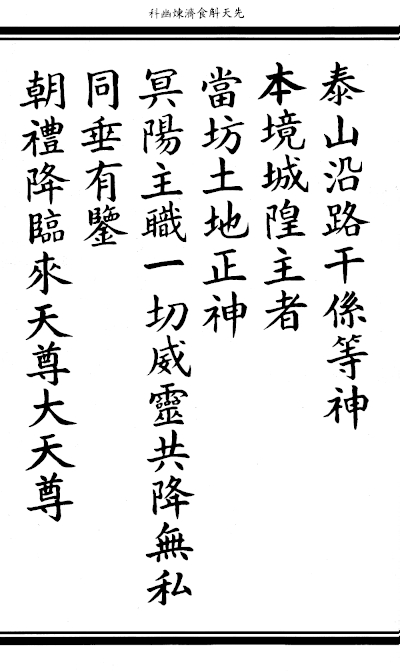 先天斛食濟煉幽科
泰山沿路干係等神
本境城隍主者
當坊土地正神
冥陽主職一切威靈共降無私
同垂有鑒
朝禮降臨來天尊大天尊